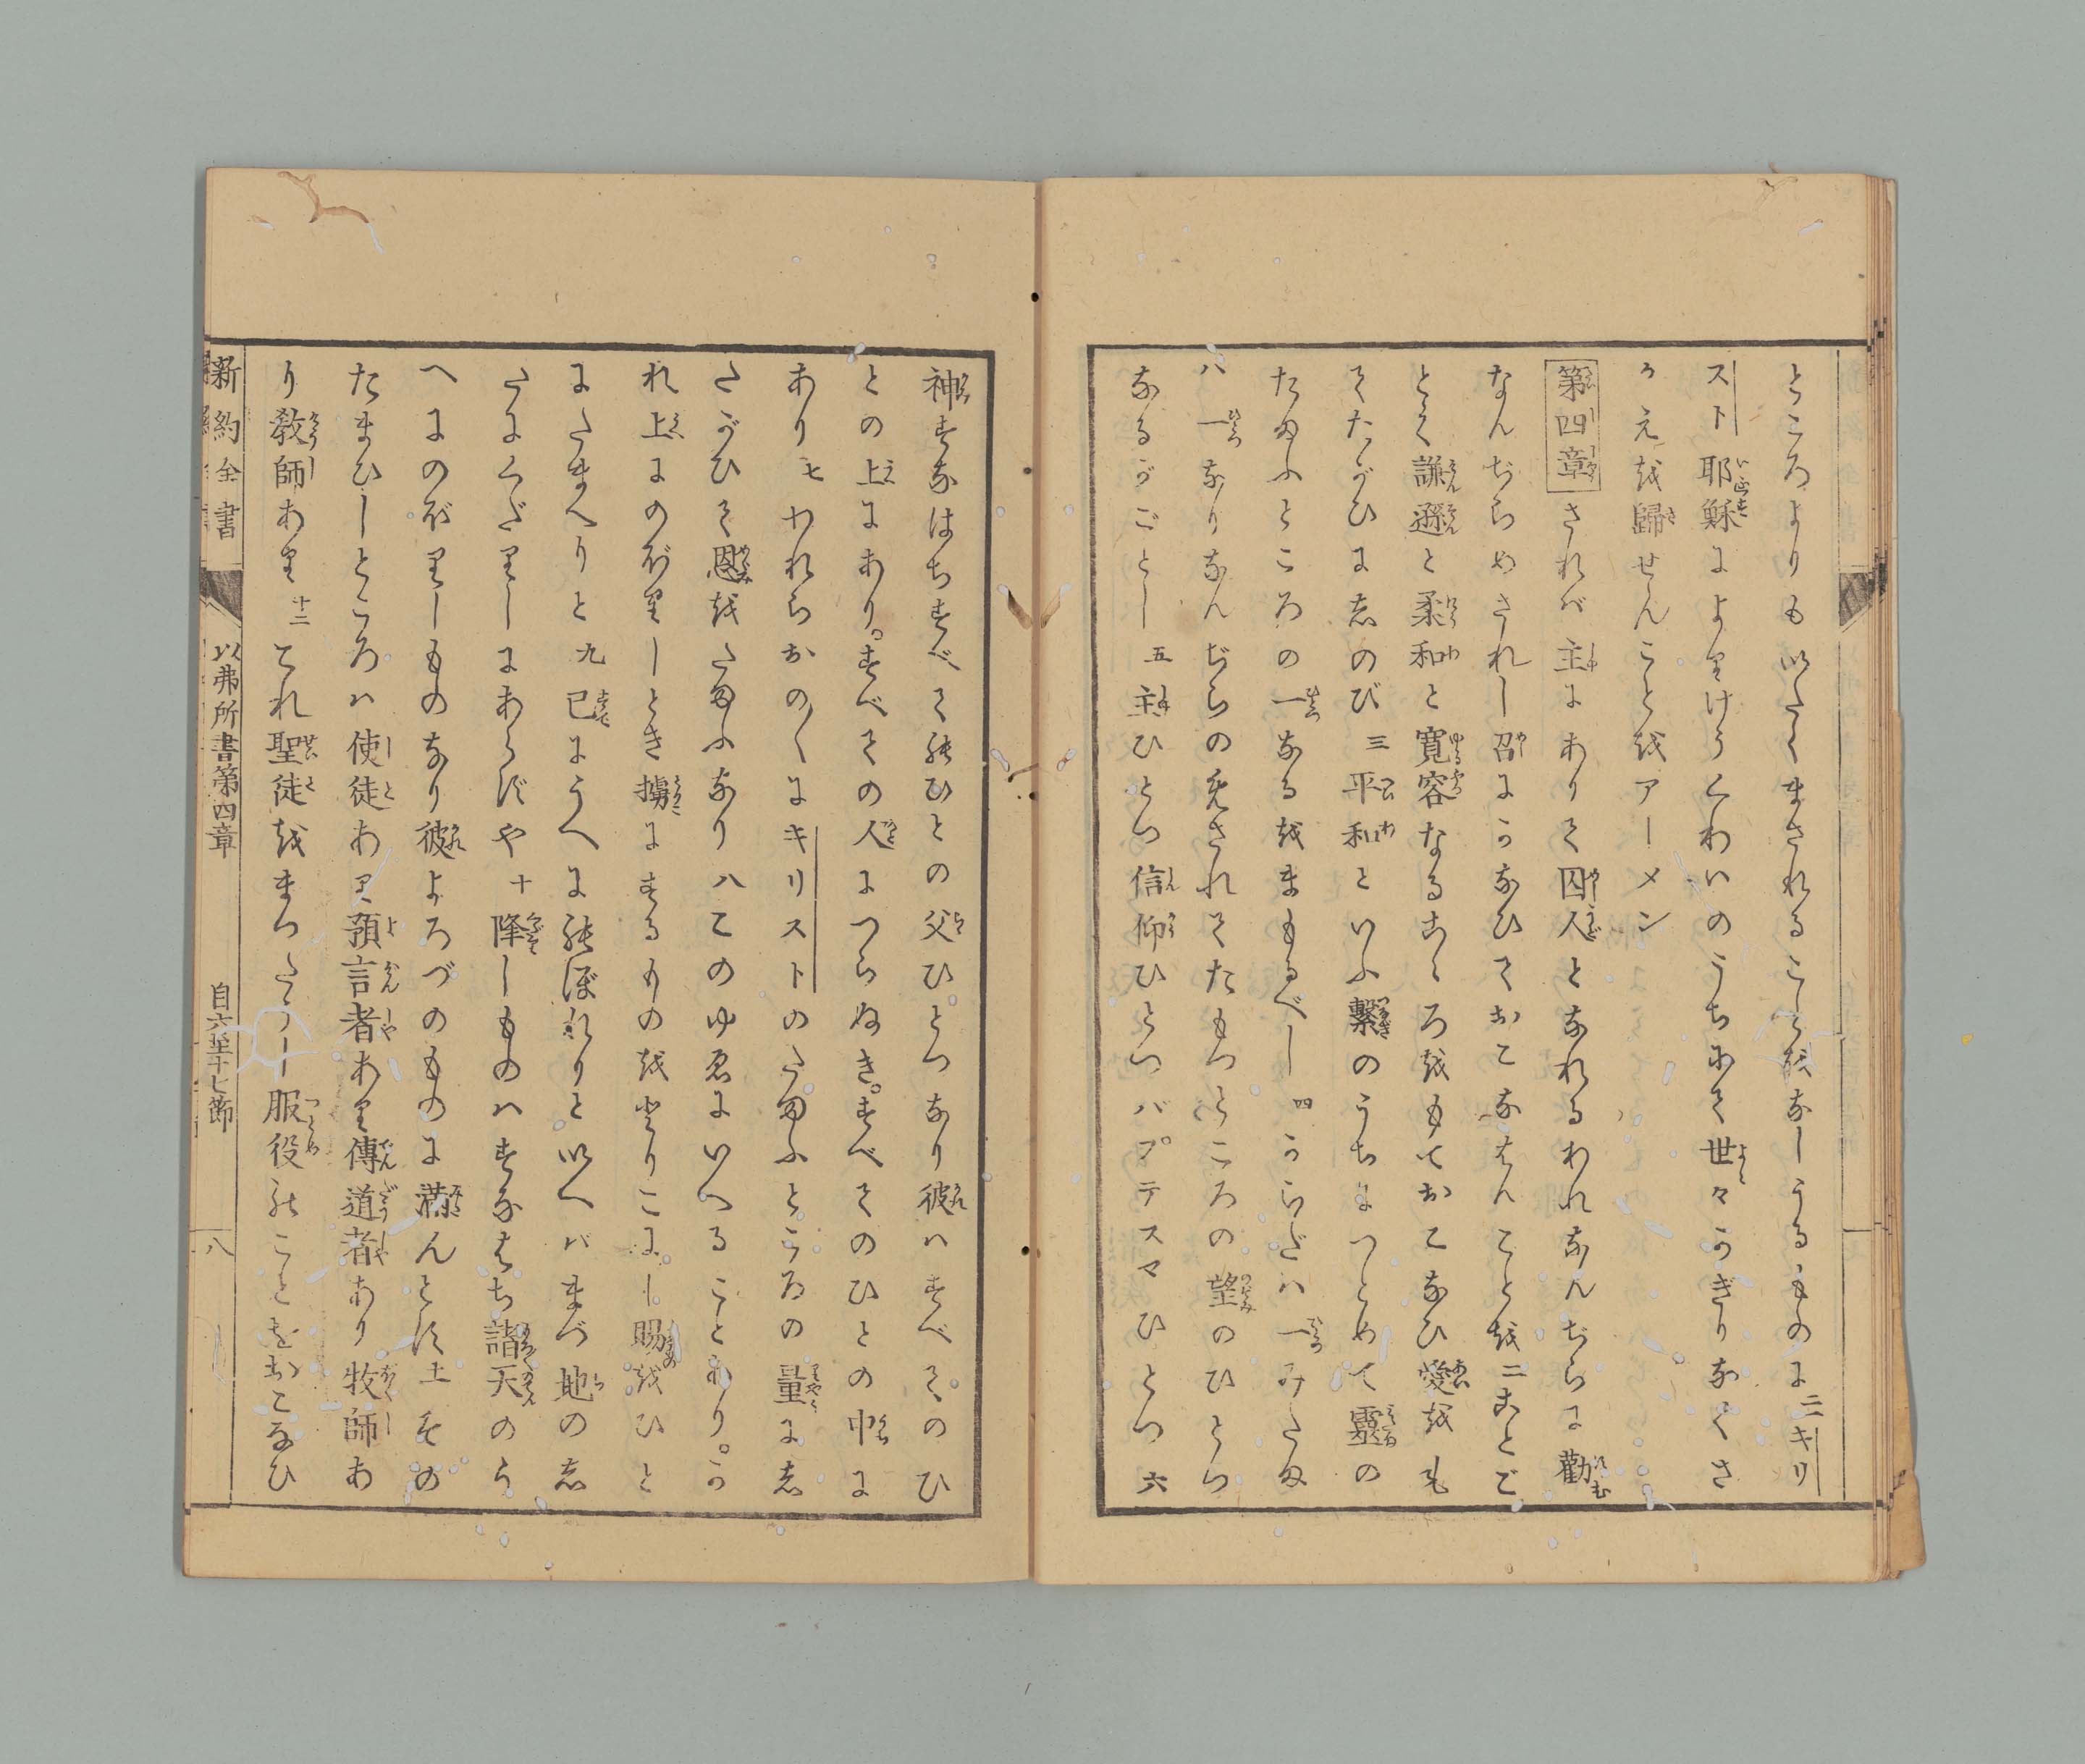 ところよりもいたくまされることをなしうるものに二十一キリ
スト耶穌によりけうくわいのうちにて世々かぎりなくさ
かえを歸せんことをアーメン
第四章 されば主にありて囚人となれるわれなんぢらに勸
なんぢらめされし召にかなひておこなはんことを二ことご
とく謙遜と柔和と寛容なるこゝろをもておこなひ愛をも
てたがひに志のび三平和といふ繋のうちにつとめて靈の
たまふところの一なるをまもるべし四からだハ一みたま
ハ一なりなんぢらの免されてたもつところの望のひとつ
なるがごとし五主ひとつ信仰ひとつバプテスマひとつ六
神すなはちすべて能ひとの父ひとつなり彼ハすべてのひ
との上にあり。すべての人につらぬき。すべてのひとの中に
あり七われらおの〳〵にキリストのたまふところの量に志
たがひて恩をたまふなり八このゆゑにいへることあり。か
れ上にのぼりしとき擄にするものをとりこにし賜をひと
にたまへりと九已にうへに能ぼれりと以へバまづ地の志
たにくだりしにあらずや十降しものハすなはち諸天のう
へにのぼりしものなり彼よろづのものに滿んとす十一その
たまひしところハ使徒あり預言者あり傳道者あり牧師あ
り教師あり十二これ聖徒をまつたうし服役のことをおこなひ
新約全書 以弗所書第四章 自六至十七節 八